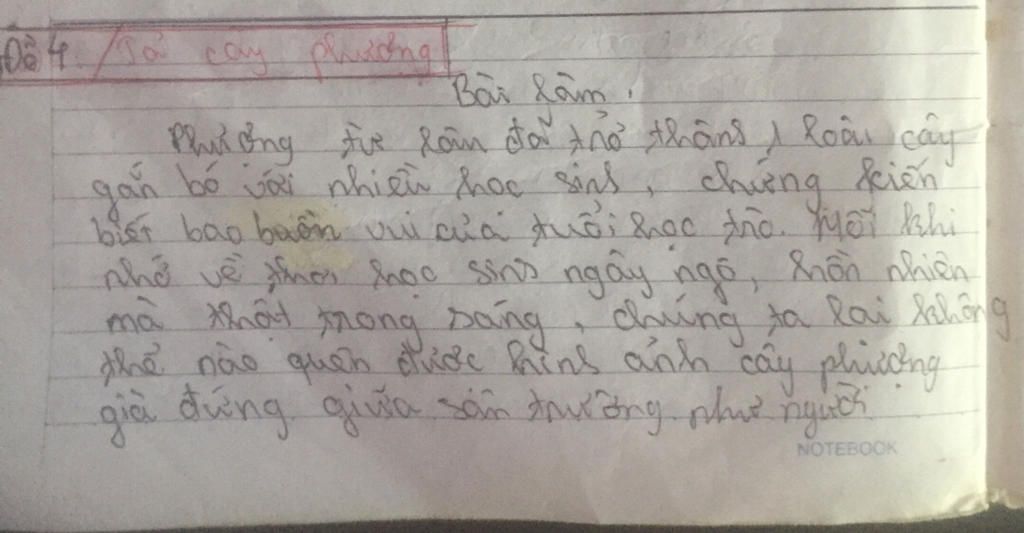 Đề 4. / Tả cây phượng
Bài làm.
Phượng từ lâu đã trở thành 1 loài cây
gắn bó với nhiều học sinh, chứng kiến
biết bao buồn vui của tuổi học trò. Mỗi khi
nhớ về thời học sinh ngây ngô, hồn nhiên
mà thật trong sáng, chúng ta lại không
thể nào quên được hình ảnh cây phượng
già đứng giữa sân trường như người
NOTEBOOK